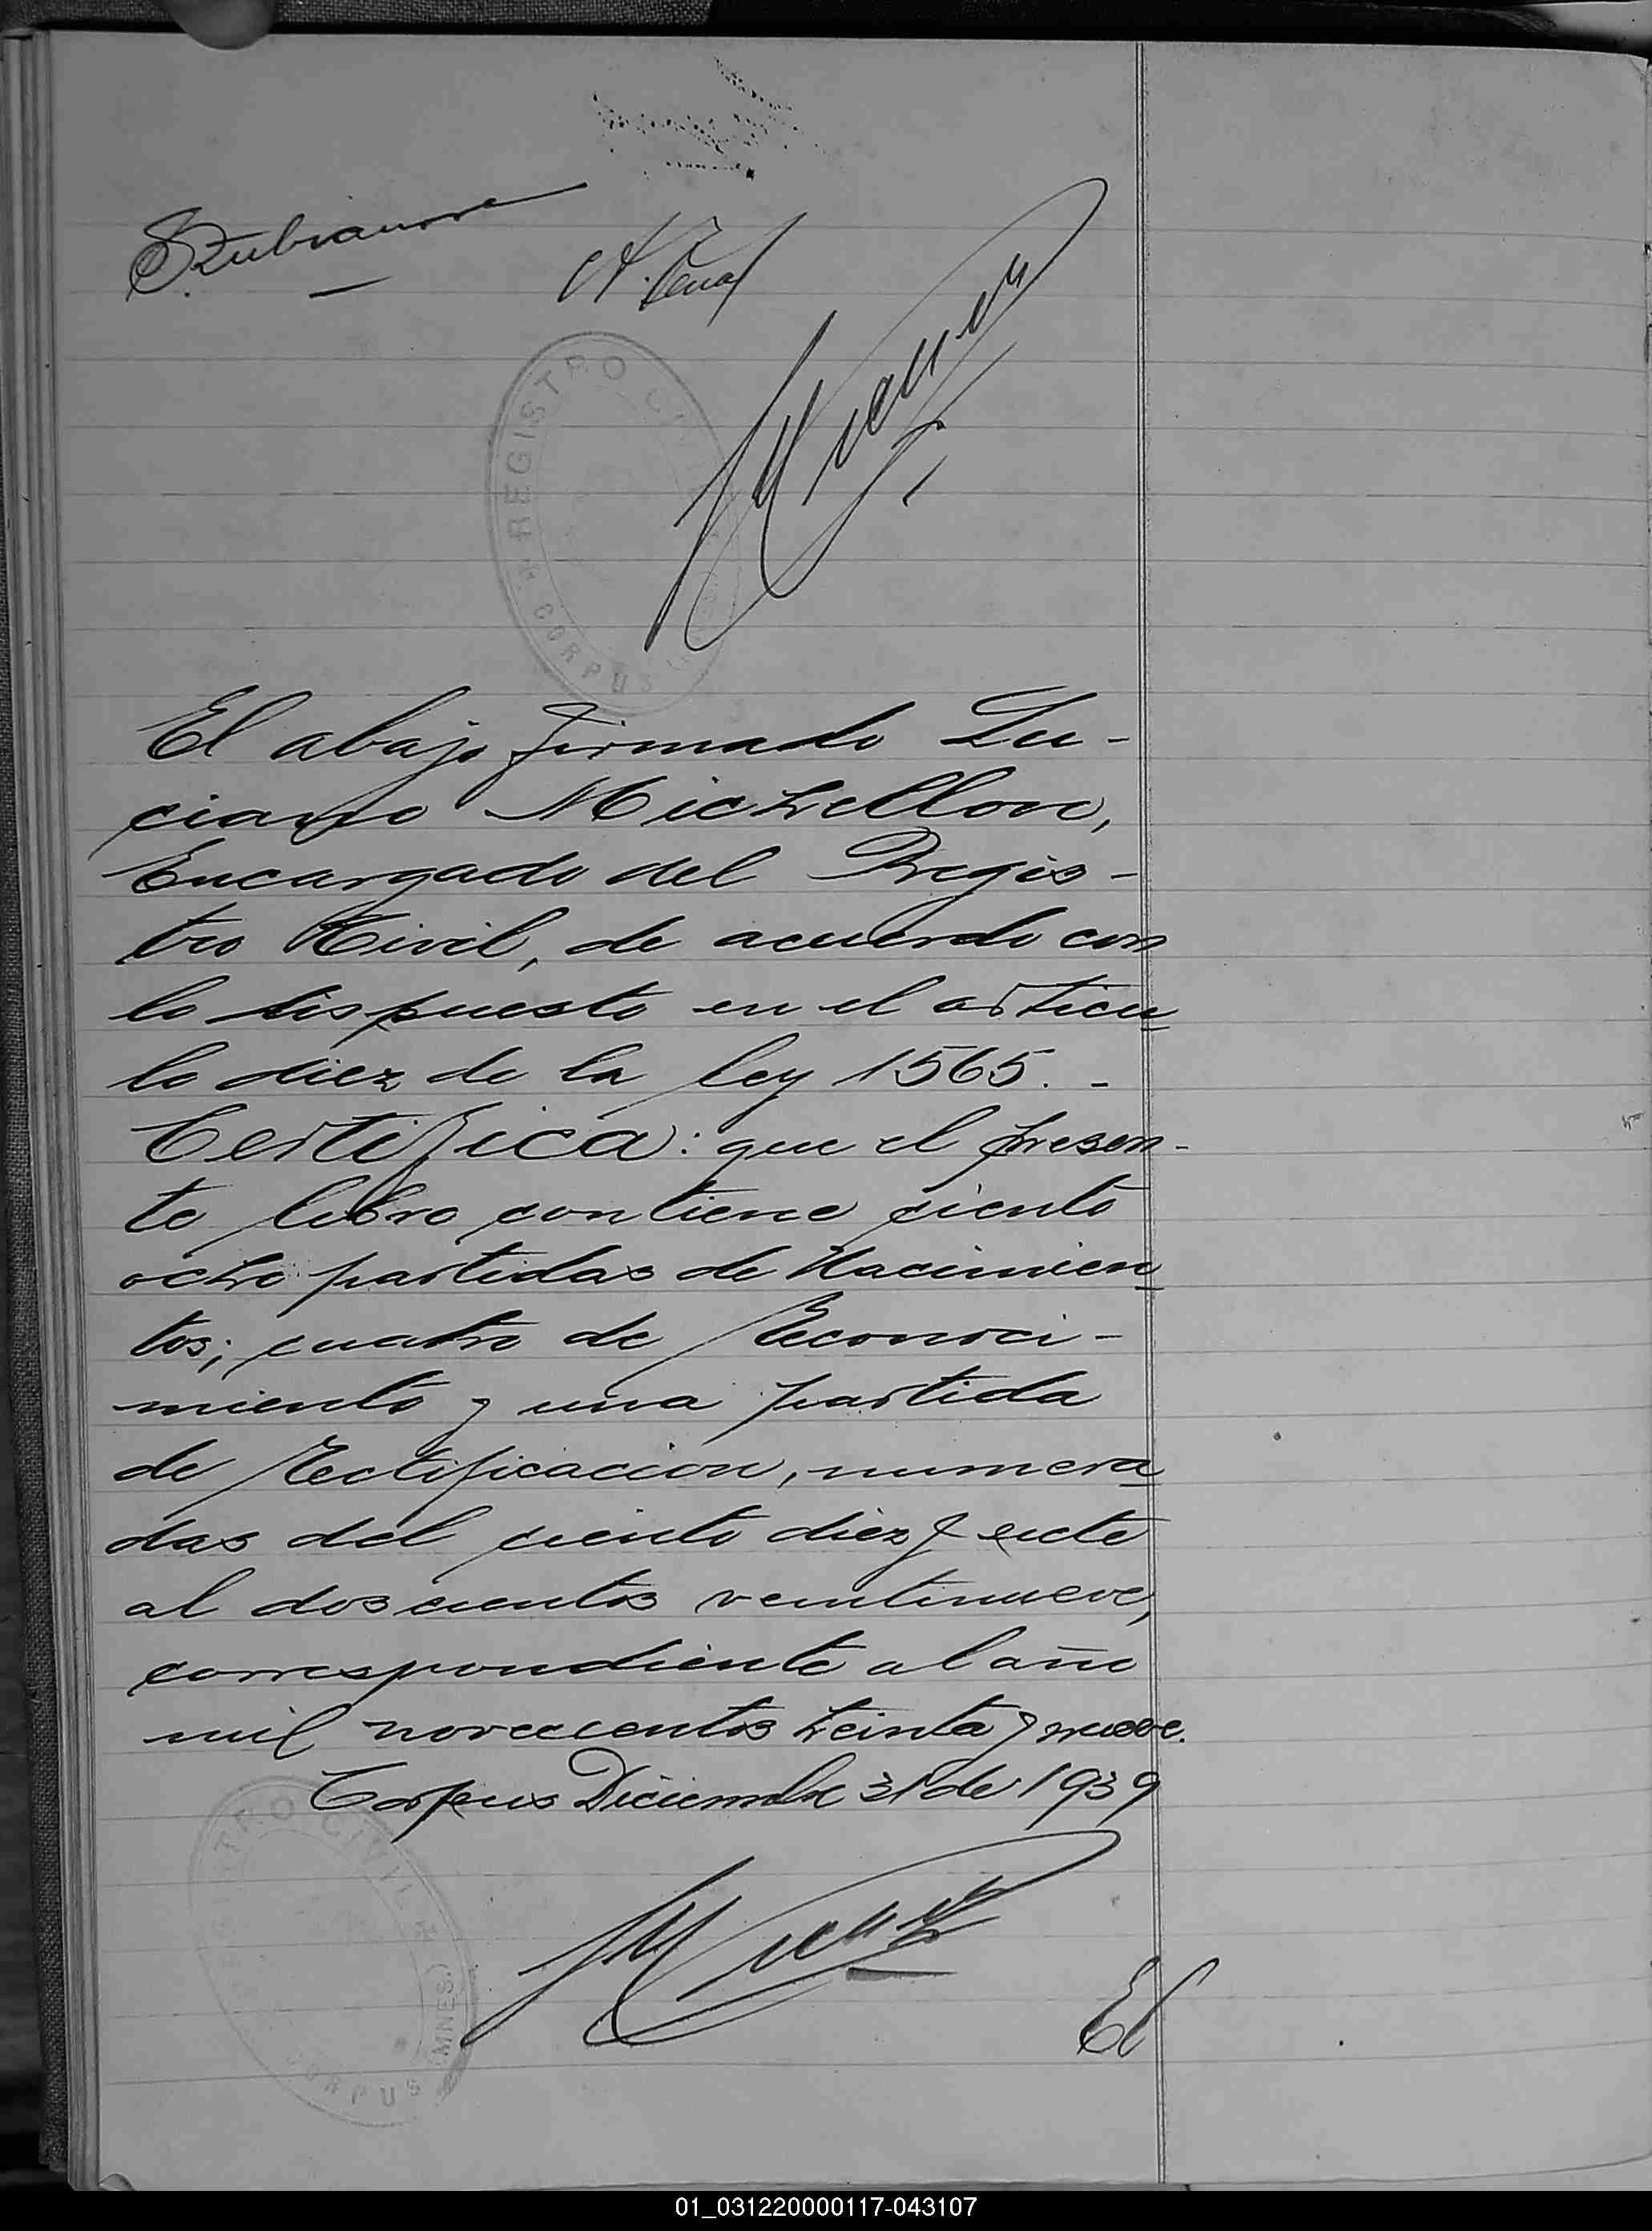 REGISTRO CIVIL
CORPUS
El abajo firmado Lu-
ciano Michellon,
Encargado del Regis-
tro Civil, de acuerdo con
lo dispuesto en el articu
lo diez de la ley 1565. -
Certifica: que el presen-
te libro contiene ciento
ocho partidas de Nacimien
tos; cuatro de Reconoci-
miento y una partida
de Rectificacion, numera
das del ciento diez y
al doscientos veintinueve,
correspondiente al año
mil novecientos treinta y nueve.
Corpus Diciembre 31 de 1939
REGISTRO CIVIL
CORPUS (MNES.)
El
01_031220000117-043107